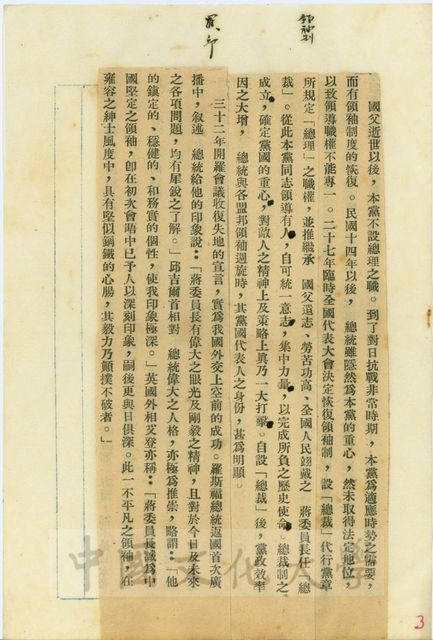 領袖制
黨部
國父逝世以後，本黨不設總理之職。到了對日抗戰非常時期，本黨爲適應時勢之需要，
而有領袖制度的恢復。民國十四年以後，總統雖隱然爲本黨的重心，然未取得法定地位，
以致領導職權不能專一。二十七年臨時全國代表大會決定恢復領袖制，設「總裁」代行黨章
所規定「總理」之職權，並推繼承　國父遺志、勞苦功高、全國人民翊戴之　蔣委員長任　總
裁」。從此本黨同志領導有人，自可統一意志，集中力量，以完成所負之歷史使命。總裁制之
成立，確定黨國的重心，對敵人之精神上及策略上眞乃一大打擊。自設「總裁」後，黨政效率
因之大增，　總統與各盟邦領袖週旋時，其黨國代表人之身份，甚爲明顯。
三十二年開羅會議收復失地的宣言，實爲我國外交上空前的成功。羅斯福總統返國首次廣
播中，叙述　總統給他的印象說：「蔣委員長有偉大之眼光及剛毅之精神，且對於今日及未來
之各項問題，均有犀銳之了解。」邱吉爾首相對　總統偉大之人格，亦極爲推崇，略謂：「他
的鎭定的、穩健的、和務實的個性，使我印象極深。」英國外相艾登亦稱：「蔣委員長誠爲中
國堅定之領袖，卽在初次會晤中已予人以深刻印象，嗣後更與日俱深。此一不平凡之領袖，在
雍容之紳士風度中，具有堅似鋼鐵的心腸，其毅力乃顚撲不破者。」
中國文化大學
3